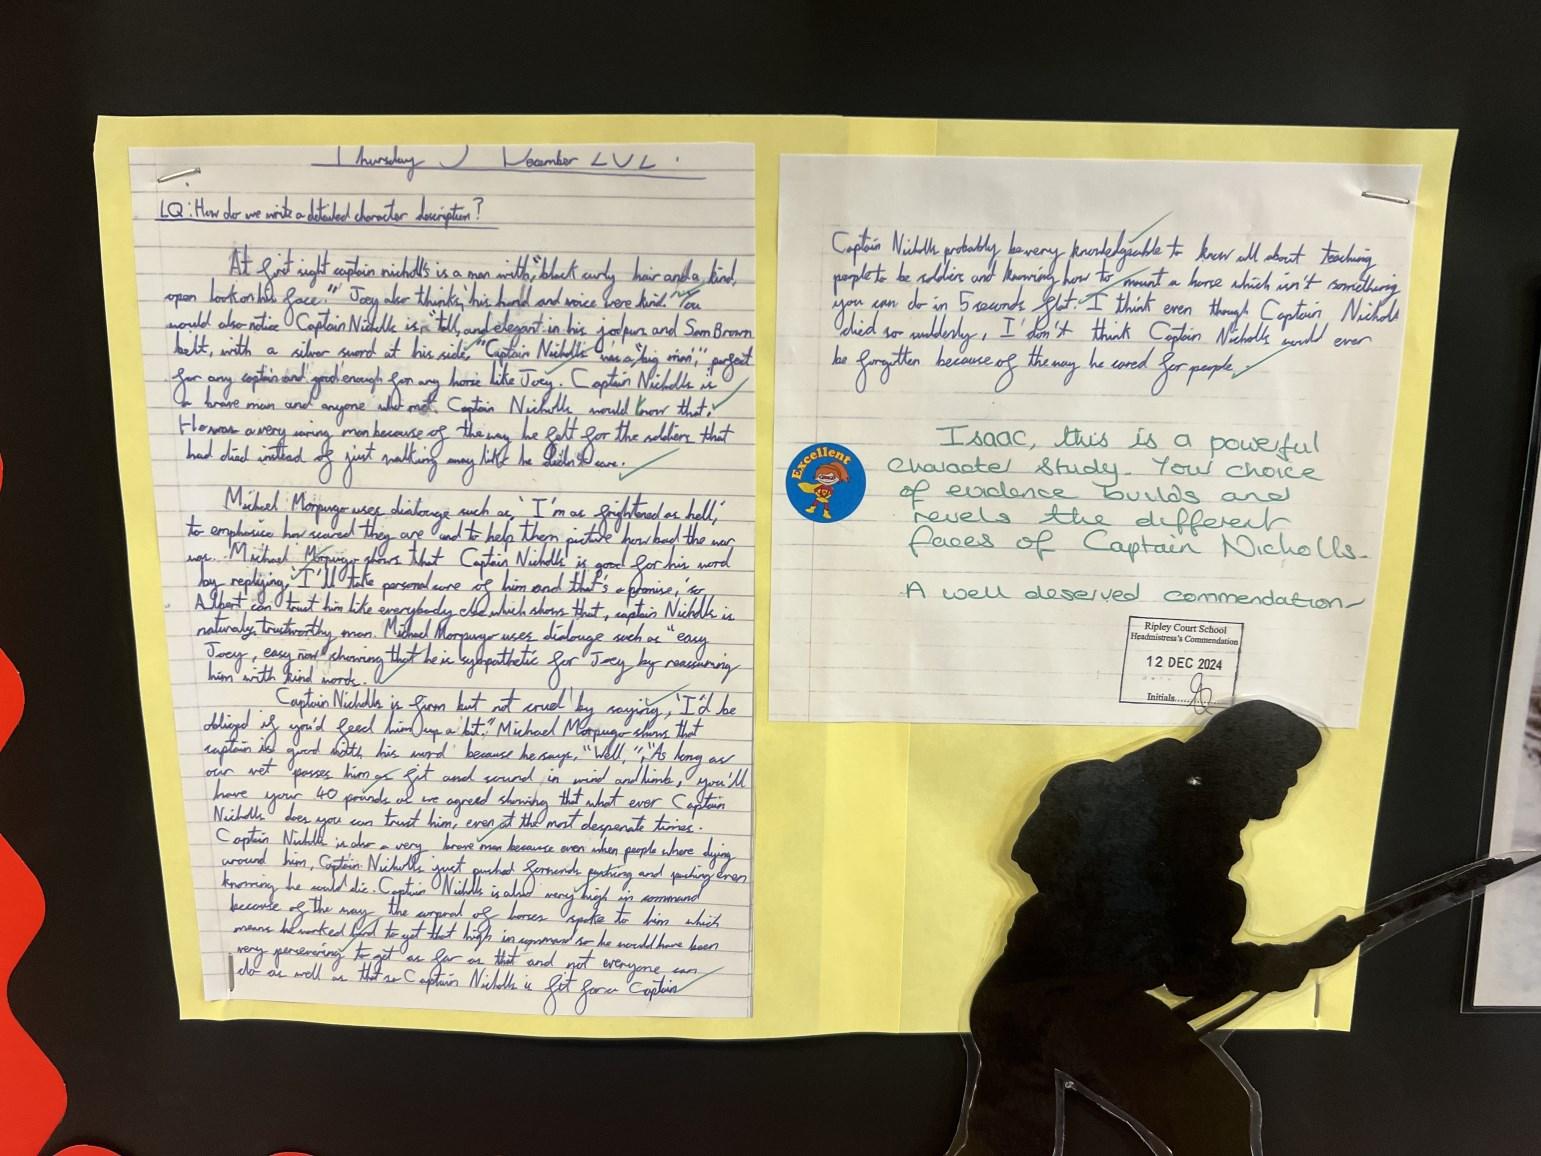 Thursday December
LQ: How do we write a detailed character description?
At first sight captain nicholls is a man with, "black curly hair and a kind,
open look on his face." Joey also thinks, his hand and voice were kind. You
would also notice Captain Nicholls is, "tall, and elegant in his jodpurs and Sam Brown
belt, with a silver sword at his side." Captain Nicholls was a "big man," perfect
for any captain and good enough for any horse like Joey. Captain Nicholls is
a brave man and anyone who met Captain Nicholls would know that.
He was a very caring man because of the way he felt for the soldiers that
had died instead of just walking away like he didn't care.
Michael Morpurgo uses dialouge such as, 'I'm as frightened as hell,'
to emphasise how scared they are and to help them picture how bad the war
was. Michael Morpurgo shows that Captain Nicholls is good for his word
by replying, 'I'll take personal care of him and that's a promise,' so
Albert can trust him like everybody else which shows that, captain Nicholls is
naturaly trustworthy man. Michael Morpurgo uses dialouge such as "easy
Joey, easy now" showing that he is sympathetic for Joey by reassuring
him with kind words.
Captain Nicholls is firm but not cruel by saying, 'I'd be
obliged if you'd feed him up a bit." Michael Morpurgo shows that
captain is good with his word because he says, "Well," "As long as
our vet passes him as fit and sound in wind and limb, you'll
have your 40 pounds as we agreed showing that what ever Captain
Nicholls does you can trust him, even at the most desperate times.
Captain Nicholls is also a very brave man because even when people where dying
around him, Captain Nicholls just pushed forwards pushing and pushing even
knowing he would die. Captain Nicholls is also very high in command
because of the way the corporal of horses spoke to him which
means he worked hard to get that high in command so he would have been
very persevering to get as far as that and not everyone can
do as well as that so Captain Nicholls is fit for a Captain
Captain Nicholls probably be very knowledgeable to know all about teaching
people to be soldiers and knowing how to mount a horse which isn't something
you can do in 5 seconds flat. I think even though Captain Nicholls
died so suddenly, I don't think Captain Nicholls would ever
be forgotten because of the way he cared for people.
Excellent
Isaac, this is a powerful
character study. Your choice
of evidence builds and
revels the different
faces of Captain Nicholls.
A well deserved commendation
Ripley Court School
Headmistress's Commendation
12 DEC 2024
Initials